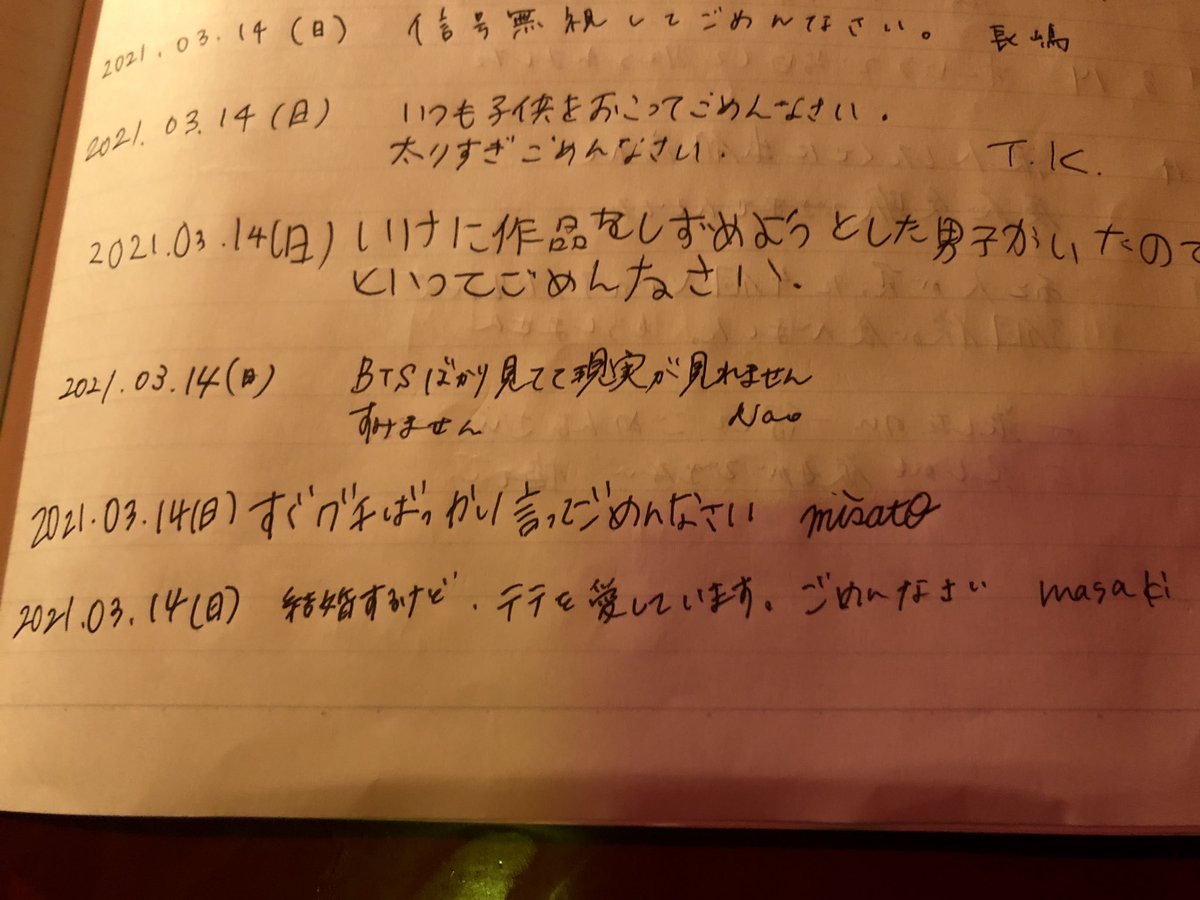 2021.03.14(日) 信号無視してごめんなさい。 長嶋
2021.03.14(日) いつも子供をおこってごめんなさい.
太りすぎごめんなさい. T.K.
2021.03.14(日) いけに作品をしずめようとした男子がいたので
といってごめんなさい.
2021.03.14(日) BTSばかり見てて現実が見れません
すみません Nao
2021.03.14(日) すぐグチばっかし言ってごめんなさい misato
2021.03.14(日) 結婚するけど、テテを愛しています。ごめんなさい masaki